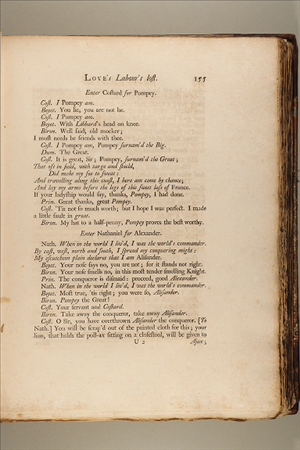 LOVE's Labour's lost. 155
Enter Costard for Pompey.
Cost. I Pompey am.
Boyet. You lie, you are not he.
Cost. I Pompey am.
Boyet. With Libbard's head on knee.
Biron. Well said, old mocker;
I must needs be friends with thee.
Cost. I Pompey am, Pompey surnam'd the Big.
Dum. The Great.
Cost. It is great, Sir; Pompey, surnam'd the Great;
That oft in field, with targe and shield,
Did make my foe to sweat:
And travelling along this coast, I here am come by chance;
And lay my arms before the legs of this sweet lass of France.
If your ladyship would say, thanks, Pompey, I had done.
Prin. Great thanks, great Pompey.
Cost. 'Tis not so much worth; but I hope I was perfect. I made
a little fault in great.
Biron. My hat to a half-penny, Pompey proves the best worthy.
Enter Nathaniel for Alexander.
Nath. When in the world I liv'd, I was the world's commander.
By east, west, north and south, I spread my conquering might:
My escutcheon plain declares that I am Alisander.
Boyet. Your nose says no, you are not; for it stands not right.
Biron. Your nose smells no, in this most tender smelling Knight.
Prin. The conqueror is dismaid: proceed, good Alexander.
Nath. When in the world I liv'd, I was the world's commander.
Boyet. Most true, 'tis right; you were so, Alisander.
Biron. Pompey the Great!
Cost. Your servant and Costard.
Biron. Take away the conqueror, take away Alisander.
Cost. O Sir, you have overthrown Alisander the conqueror. [To
Nath.] You will be scrap'd out of the painted cloth for this; your
lion, that holds the poll-ax sitting on a closestool, will be given to
U 2 Ajax;